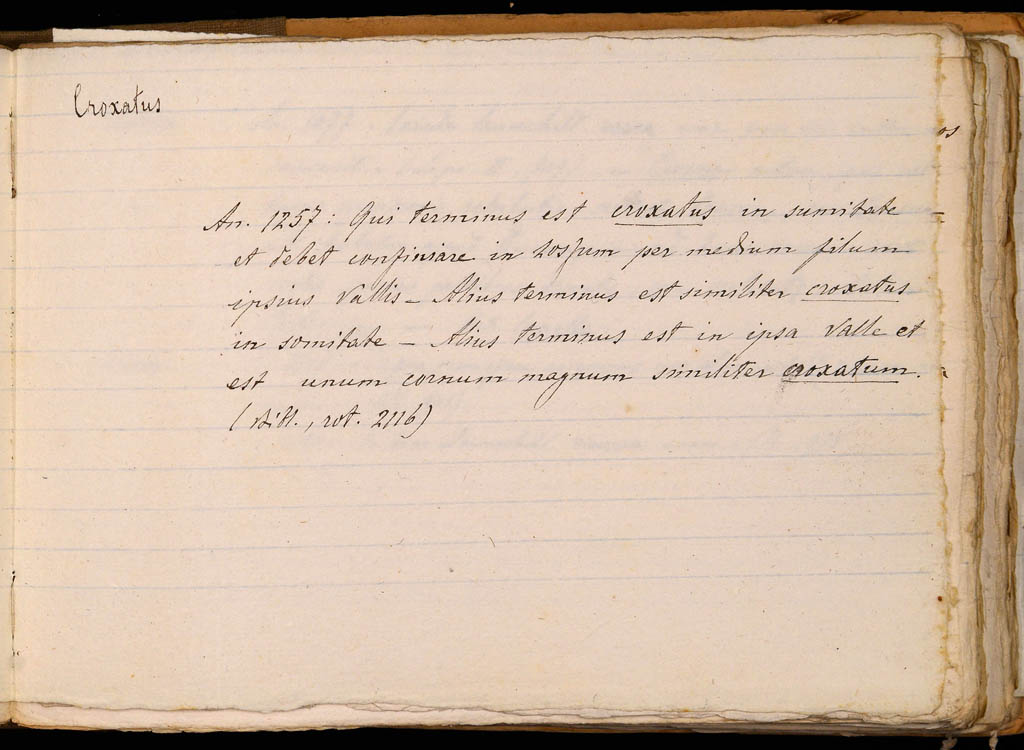 Croxatus
An. 1257: Qui terminus est croxatus in sumitate
et debet confiniare in per medium filum
ipsius Vallis - Alius terminus est similiter croxatus
in somitate - Alius terminus est in ipsa Valle et
est unum cornum magnum similiter croxatum.
(Bibl., rot. 2116)
os